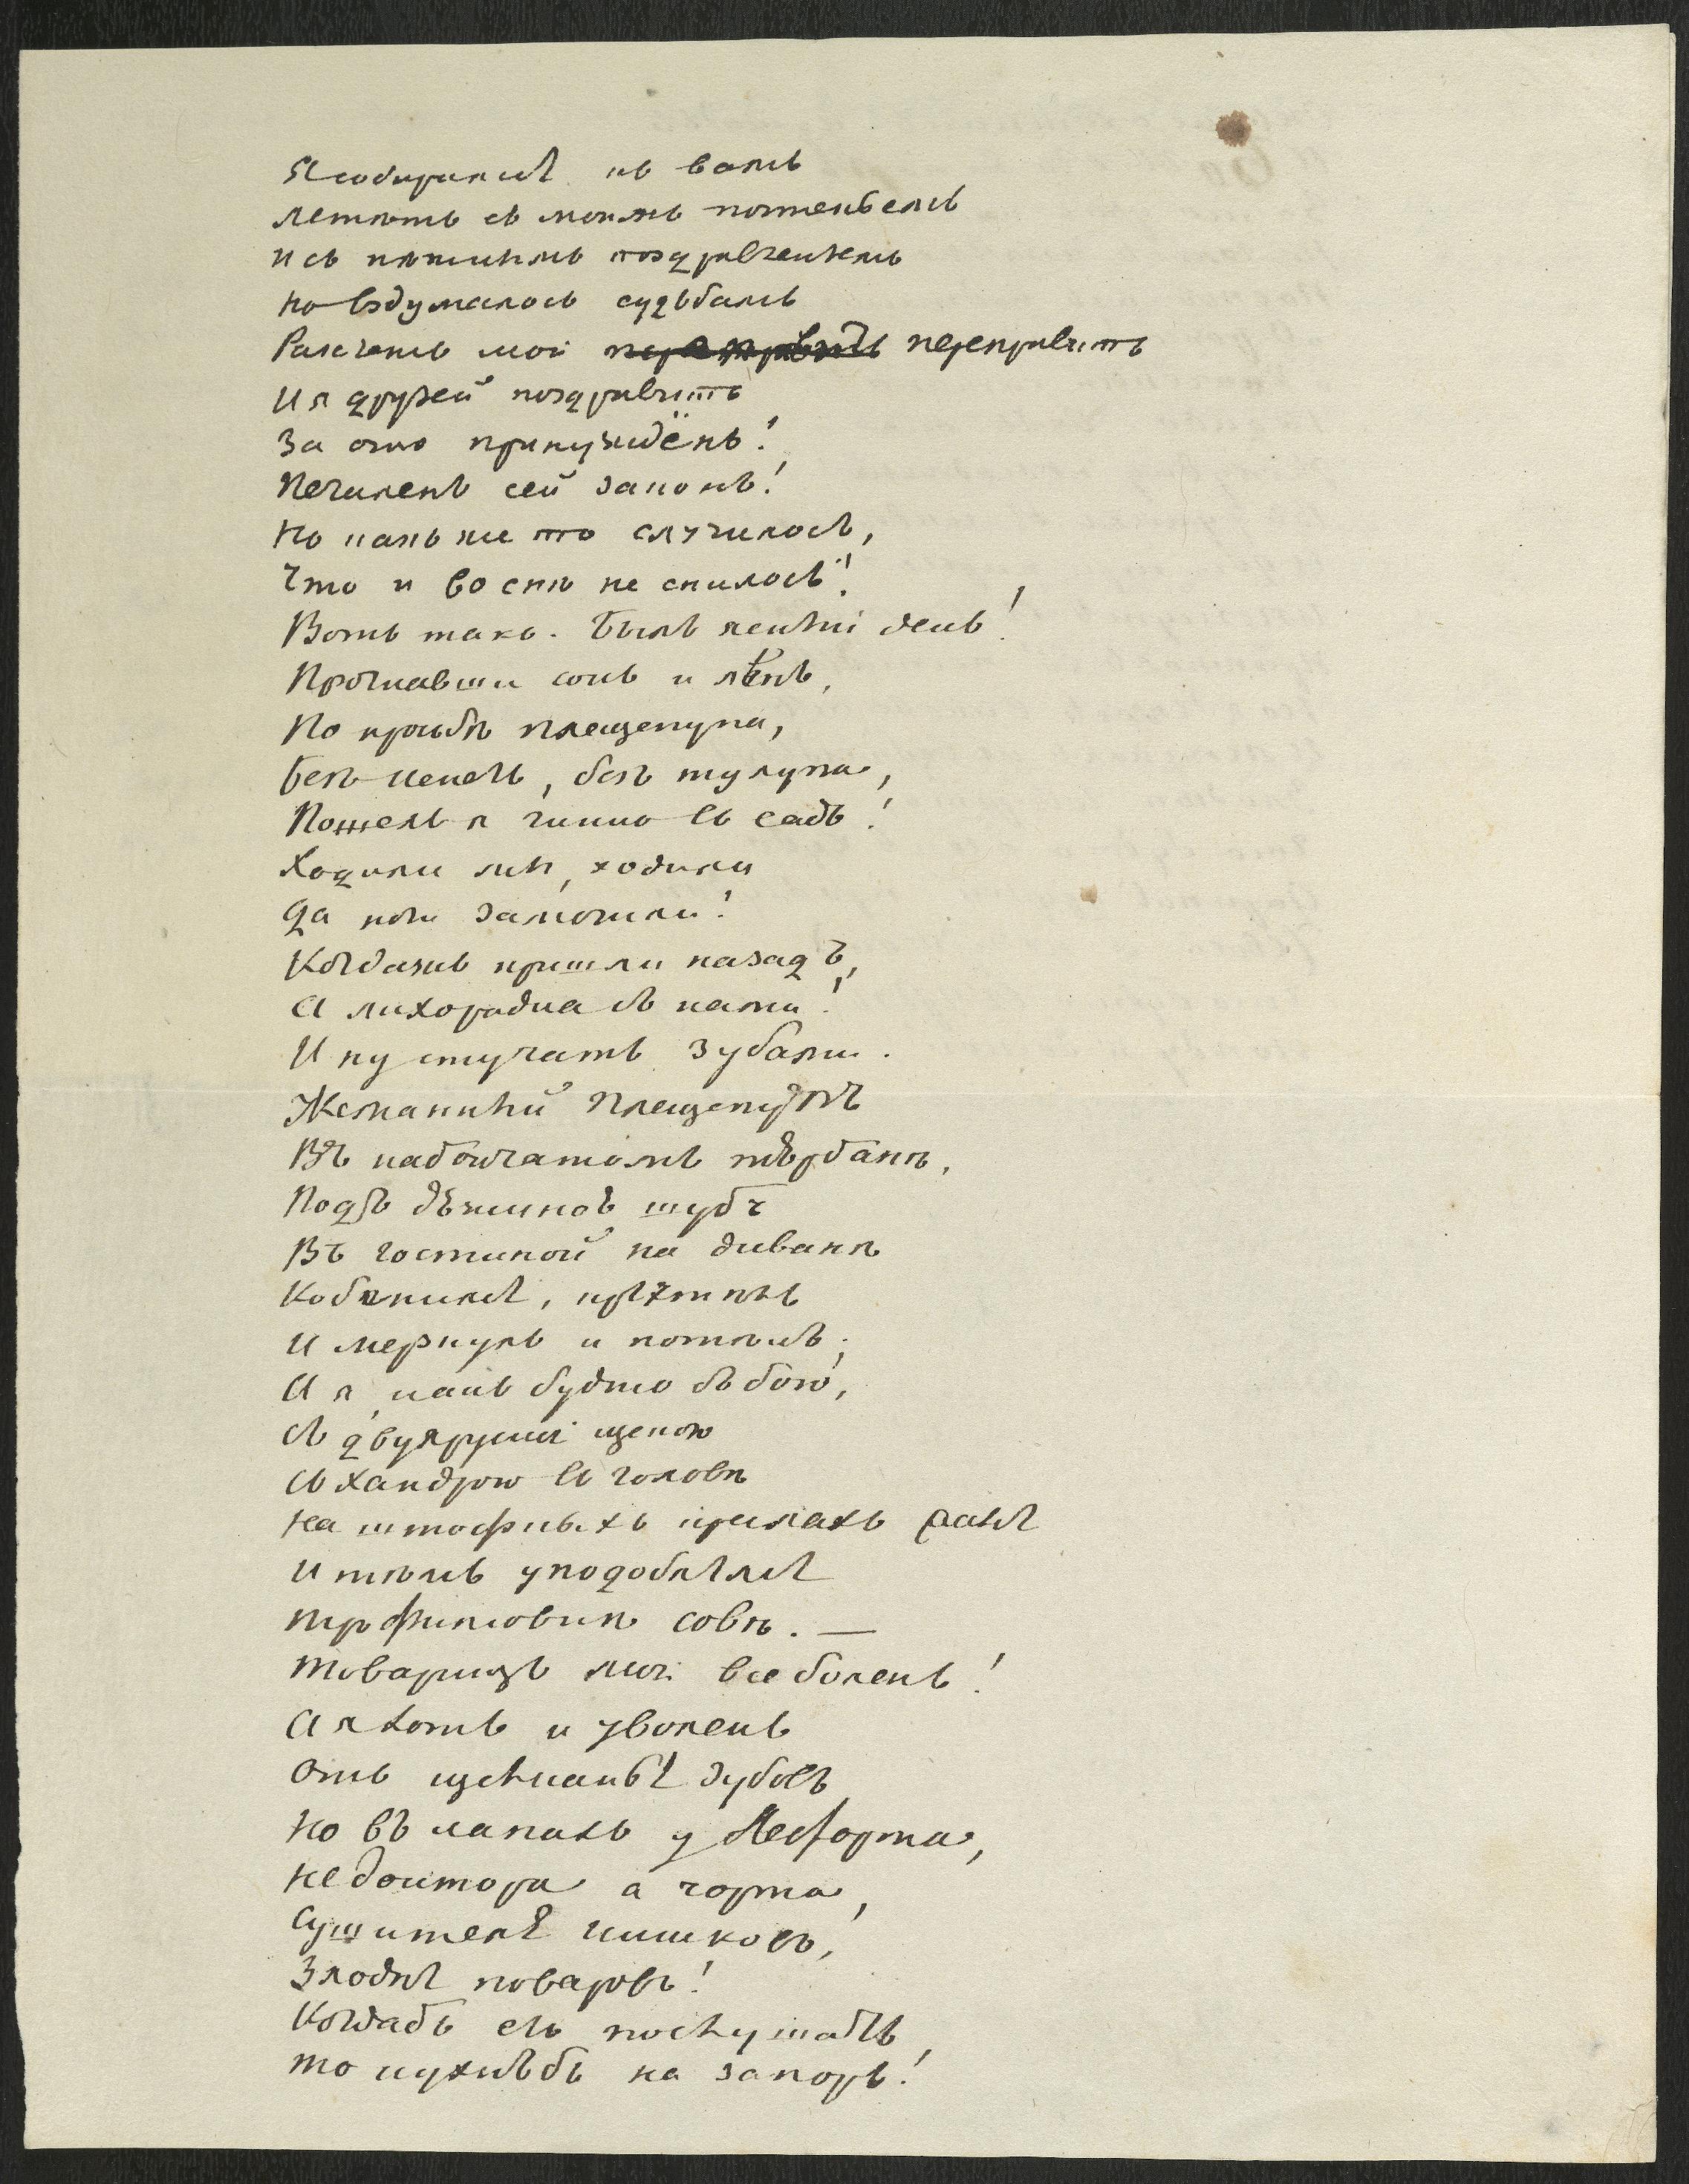 Я собирался къ вамъ
летѣть съ моимъ почтеньемъ
И съ пѣтымъ поздравленьемъ
Но вздумалось судьбамъ
Разсчетъ мой переправить
И я друзей поздравить
За очно принуждёнъ!
Печаленъ сей законъ!
Но какъ же то случилось,
Что и во снѣ не снилось!
Вотъ такъ. Былъ лѣтній день!
Прогнавши сонъ и лѣнь,
По просьбѣ Плещепупа,
Безъ кенегъ, безъ тулупа,
Пошелъ я чинно въ садъ!
Ходили мы, ходили
Да ноги замочили!
Когдажъ пришли назадъ,
А лихорадка съ нами!
И ну стучать зубами.
Жеманный Плещепупъ
Въ набойчатомъ тюрбанѣ,
Подъ дюжиной шубъ
Въ гостиной на диванѣ
Кобянился, кряхтѣлъ
И мерзнулъ и потѣлъ;
А я, какъ будто съ бою,
Съ двуярусной щекою
Съ хандрою въ головѣ
На штофныхъ креслахъ
И тѣмъ уподоблялся
Трофимовичу совѣ. —
Товарищъ мой все боленъ!
А я хоть и уволенъ
Отъ щеканья зубовъ
Но въ лапахъ у Лефорта,
Не доктора а чорта,
Сушителя кишковъ,
Злодѣя поваровъ!
Когдабъ его послушать,
То кухнѣбъ на запоръ!